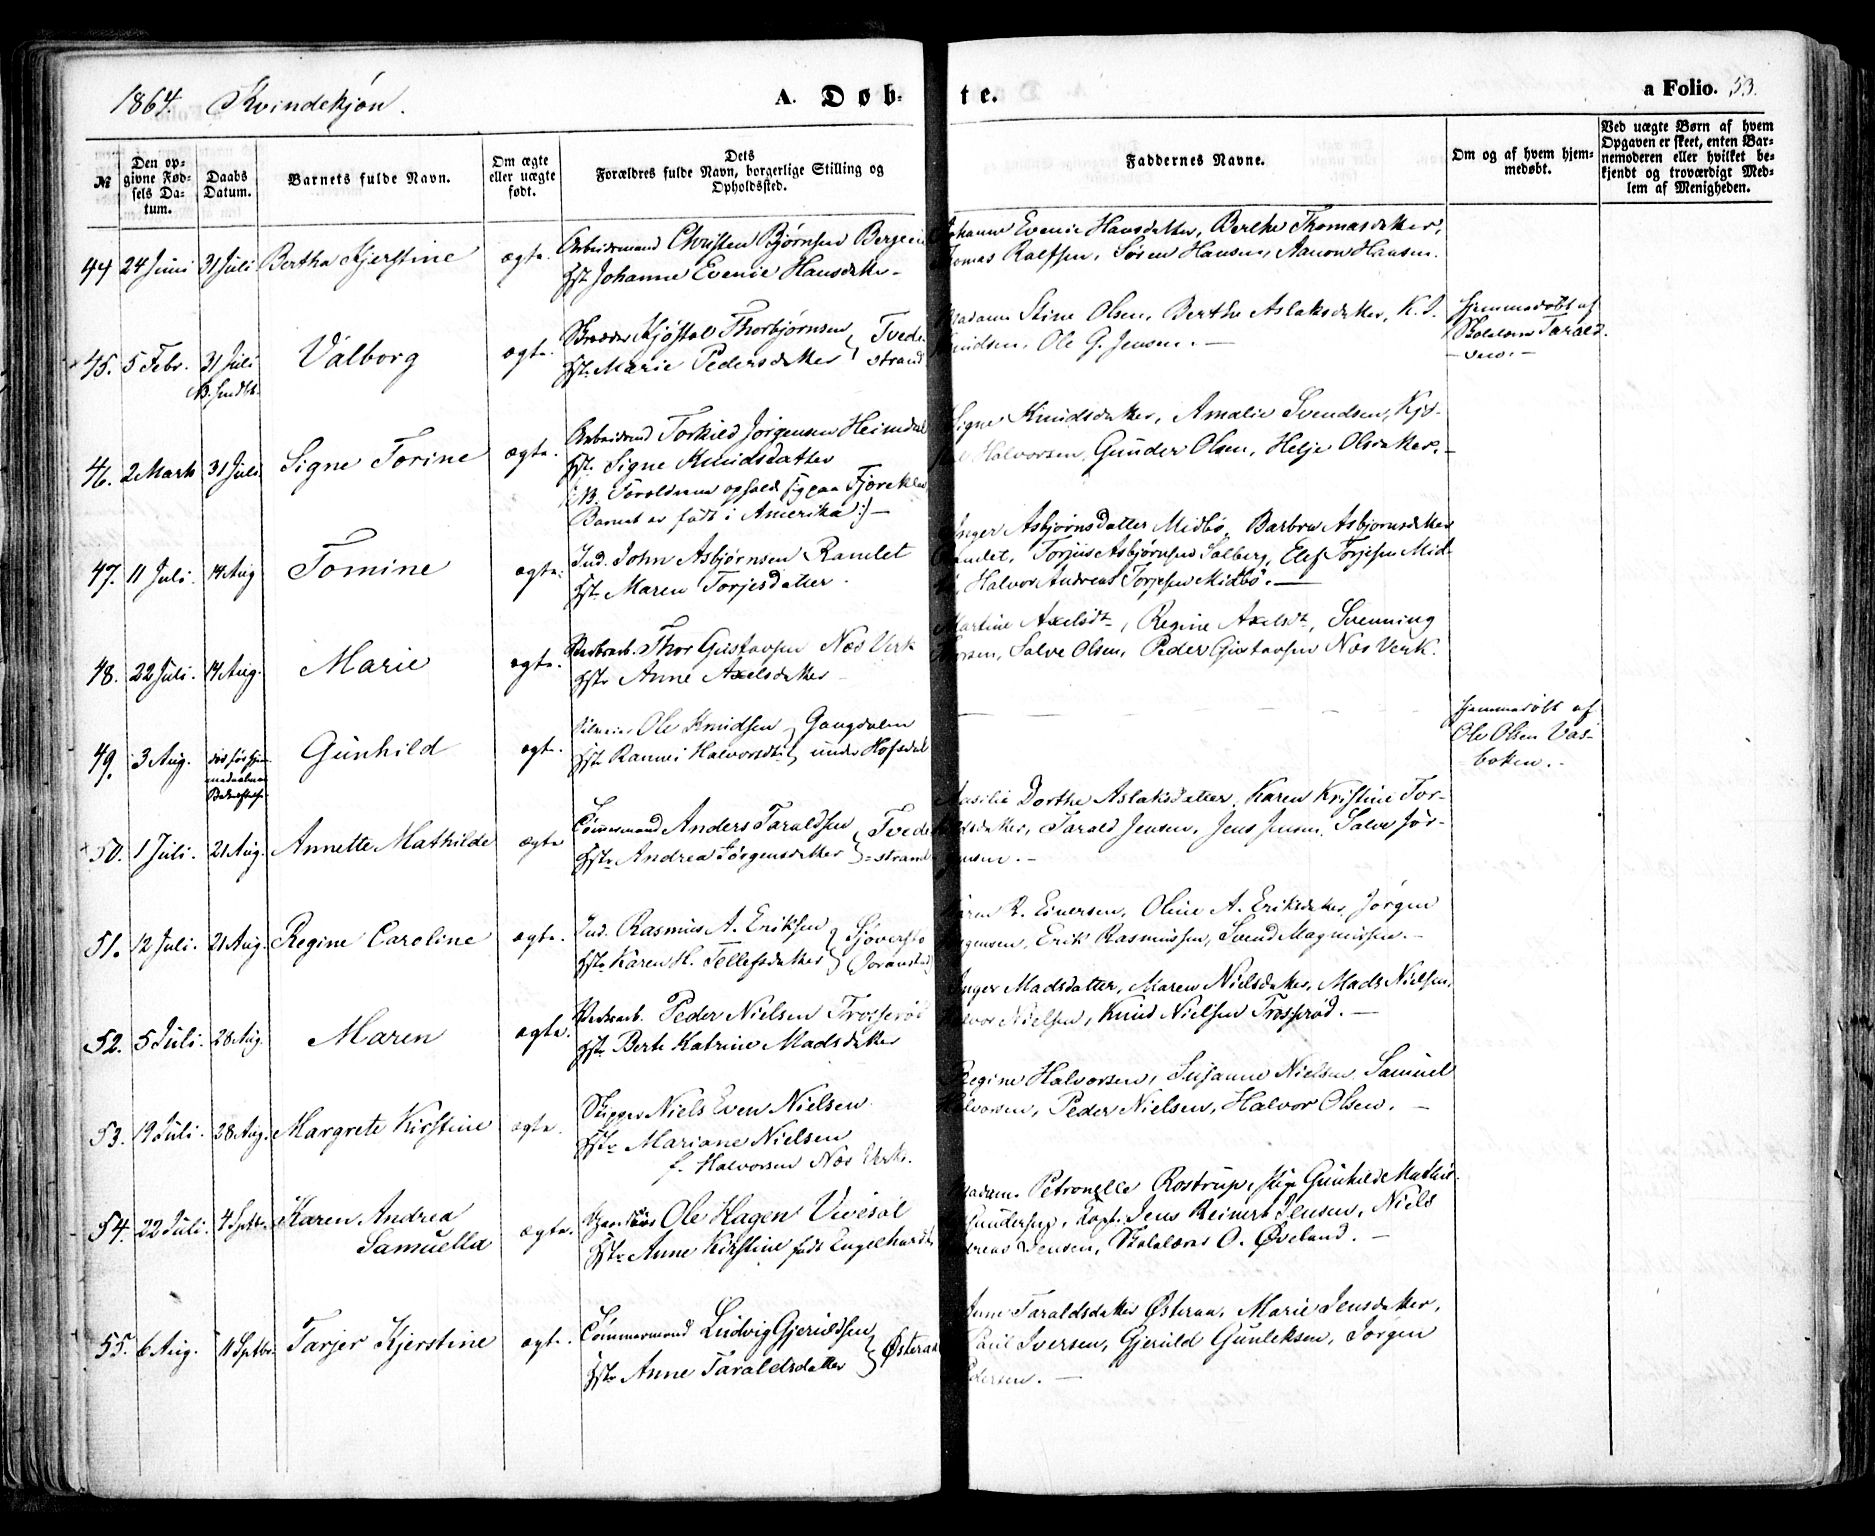 1864. Kvindekjøn.
A. Døb-
te.
a Folio. 53.
№
Den op-
givne Fød-
sels Da-
tum.
Daabs
Datum.
Barnets fulde Navn.
Om ægte
eller uægte
født.
Dets
Forældres fulde Navn, borgerlige Stilling og
Opholdssted.
Faddernes Navne.
Om og af hvem hjem-
medøbt.
Ved uægte Børn af hvem
Opgaven er skeet, enten Bar-
nemoderen eller hvilket be-
kjendt og troværdigt Med-
lem af Menigheden.
44 24 Juni 31 Juli Bertha Kjerstine ægte.
Arbeidsmand Christen Bjørnsen
Hst. Johanne Evenie Hansdatter
Johanne Evenie Hansdatter, Berthe Thomasdatter,
Thomas Ralfsen, Søren Hansen, Aanon Hansen.
45. 5 Febr. 31 Juli Valborg ægte.
Thorbjørnsen } Tvede
Hst. Marie Pedersdatter } strand
Madam Stine Olsen, Berthe Aslaksdatter, K. J.
Knudsen, Ole G. Jensen. —
Hjemmedøbt af
Skolelærer Tarald-
sen. —
46. 2 Marts 31 Juli Signe Torine ægte.
Arbeidsmd Torkild Jørgensen Heimdal
Hst. Signe Knudsdatter
NB. Forældrene opholdt sig paa
Barnet er født i Amerika :) —
Signe Knudsdatter, Amalie Svendsen,
Halvorsen, Gunder Olsen, Helje Olsdatter. —
47. 11 Juli. 14 Aug Tomine ægte.
Ind. John Asbjørnsen Ramlet
Hst. Maren Torjesdatter.
Inger Asbjørnsdatter Midbø, Barbro Asbjørnsdatter
Ramlet, Torjus Asbjørnsen Solberg, Elef Torjesen Mid-
Halvor Andreas Torjesen Midbø. —
48. 22 Juli. 14 Aug. Marie ægte.
Thor Gustavsen Næs Verk
Hst. Anne Axelsdatter
Martine Axelsdt., Regine Axelsdt., Svenning
Salve Olsen, Peder Gustavsen Næs Verk.
49. 3 Aug. Gunhild ægte.
Ole Knudsen } Gangdalen
Hst. Rannei Halvorsdt. } under Hofsdal
Hjemmedøbt af
Ole Olsen Vas-
boken. -
50. 1 Juli. 21 Aug. Annette Mathilde ægte
Tømmermand Anders Taraldsen } Tvede
Hst. Andrea Jørgensdatter } strand
Dorthe Aslaksdatter, Karen Kristine Tor-
Tarald Jensen, Jens Jensen, Salve Jør-
gensen. —
51. 12 Juli. 21 Aug. Regine Caroline ægte.
Ind. Rasmus A. Eriksen
Hst. Karen H. Tellefsdatter
Karen R. Einersen, Oline A. Eriksdatter, Jørgen
Jørgensen, Erik Rasmussen, Svend Magnussen. —
52. 5 Juli. 28 Aug. Maren ægte.
Peder Nielsen Trosserød
Hst. Berte Katrine Madsdatter
Inger Madsdatter, Maren Nielsdatter, Mads Nielsen,
Halvor Nielsen, Knud Nielsen Trosserød. —
53. 19 Juli. 28 Aug. Margrete Kirstine ægte.
Skipper Niels Even Nielsen
Hst. Mariane Nielsen
f. Halvorsen Næs Verk.
Regine Halvorsen, Susanne Nielsen, Samuel
Halvorsen, Peder Nielsen, Halvor Olsen. —
54. 22 Juli. 4 Septbr. Karen Andrea ægte.
Samuella
Ole Hagen
Hst. Anne Kirstine født Engelhardt
Madam Petronelle Rostrup, Gunhild Mathil-
Gundersen, Kapt. Jens Reinert Jensen, Niels
Andreas Jensen, Skolelærer O. Øveland. —
55. 6 Aug. 11 Septbr. Tarjer Kjerstine ægte.
Tømmermand Ludvig Gjeruldsen } Østeraa
Hst. Anne Taraldsdatter }
Taraldsdatter Østeraa, Marie Jensdatter,
Paul Iversen, Gjeruld Gunleksen, Jørgen
Pedersen. —